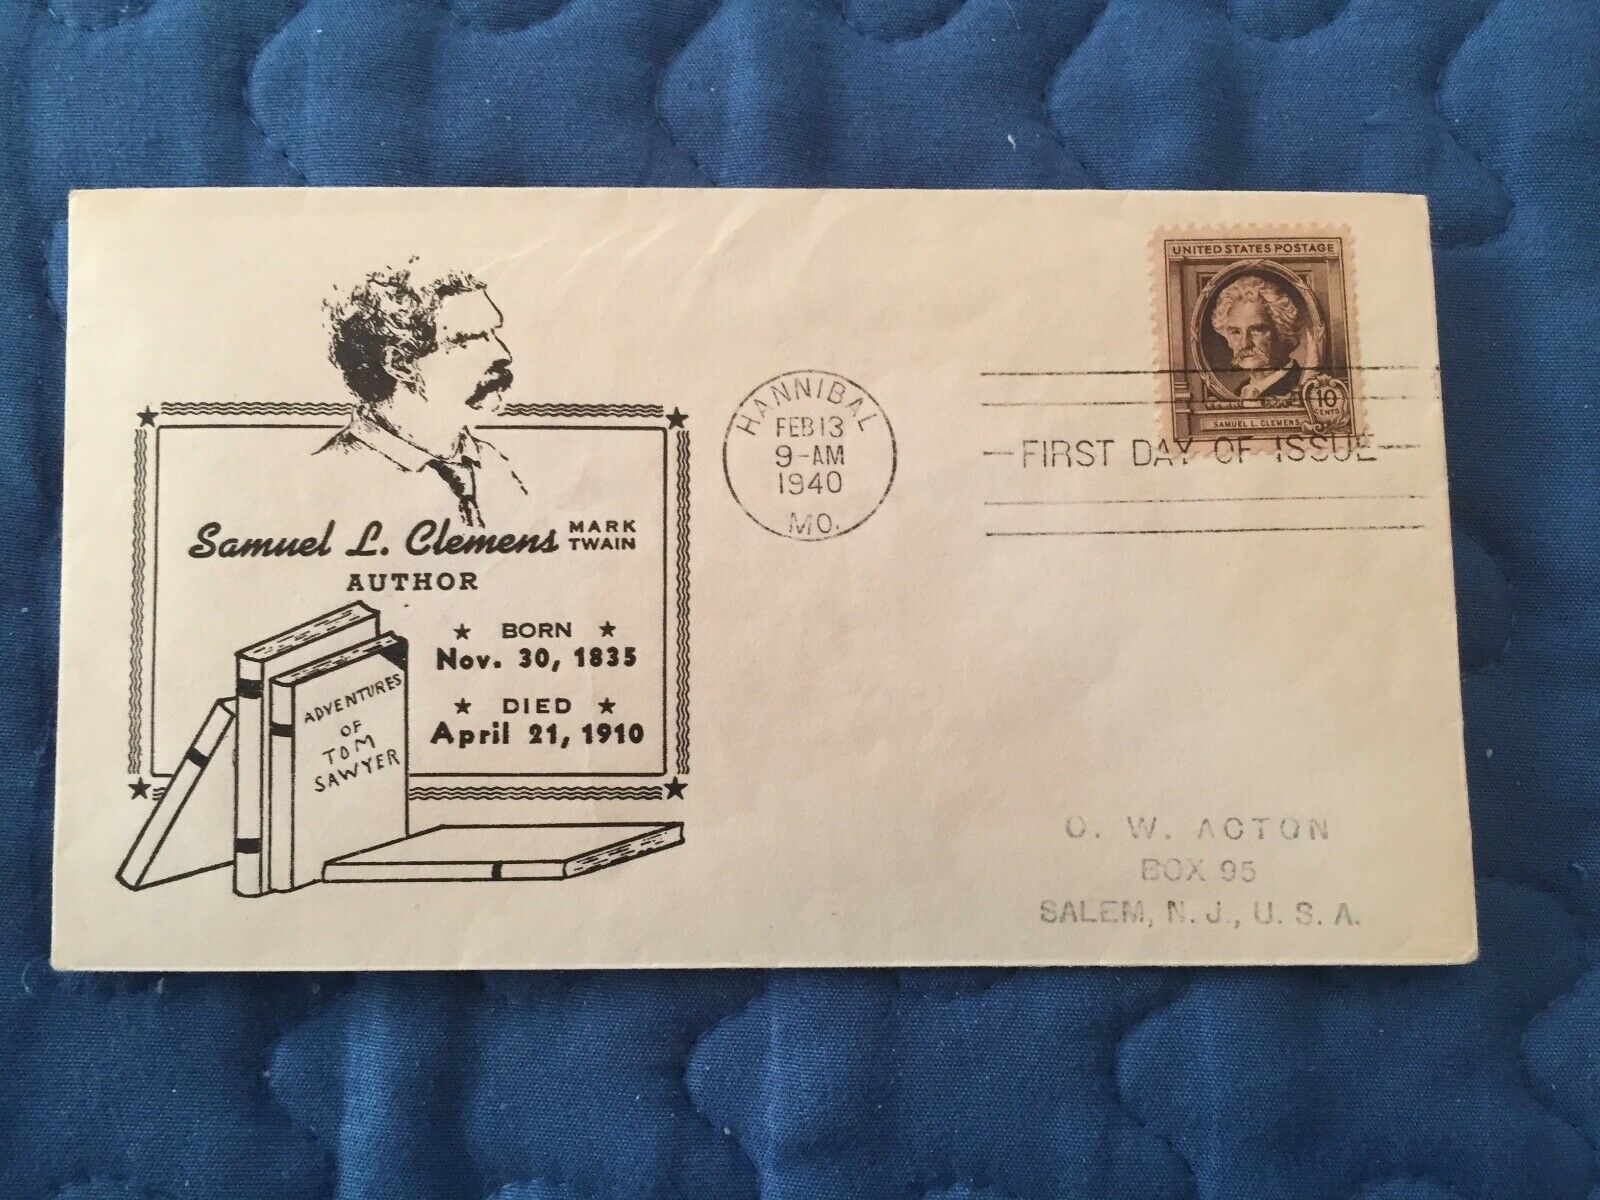 UNITED STATES POSTAGE
10
CENTS
SAMUEL L. CLEMENS
HANNIBAL
FEB 13
9-AM
1940
MO.
FIRST DAY OF ISSUE
Samuel L. Clemens MARK TWAIN
AUTHOR
★ BORN ★
Nov. 30, 1835
★ DIED ★
April 21, 1910
ADVENTURES
OF
TOM
SAWYER
O. W. ACTON
BOX 95
SALEM, N. J., U. S. A.